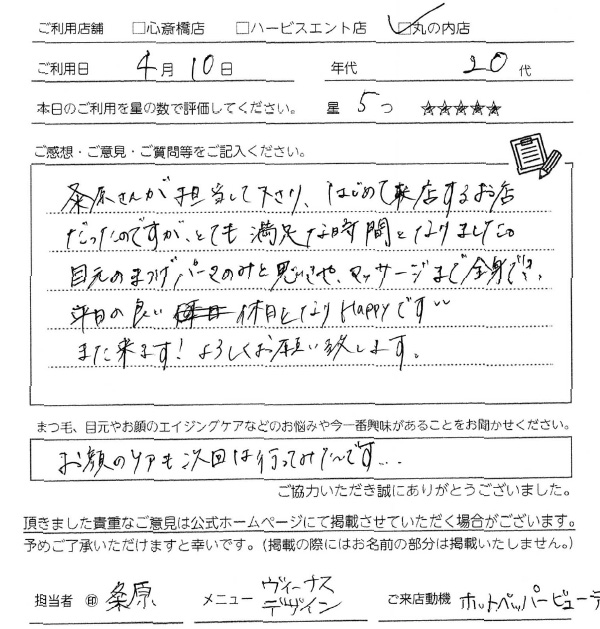 ご利用店舗 □心斎橋店 □ハービスエント店 ☑丸の内店
ご利用日 4月10日 年代 20代
本日のご利用を星の数で評価してください。 星 5つ ☆☆☆☆☆
ご感想・ご意見・ご質問等をご記入ください。
桑原さんが担当して下さり、はじめて来店するお店
だったのですが、とても満足な時間となりました。
目元のまつげパーマのみと思いきや、マッサージまで全身でき、
平日の良い 休日となりHappyです
また来ます！よろしくお願い致します。
まつ毛、目元やお顔のエイジングケアなどのお悩みや今一番興味があることをお聞かせください。
お顔のケアも次回は行ってみたいです...
ご協力いただき誠にありがとうございました。
頂きました貴重なご意見は公式ホームページにて掲載させていただく場合がございます。
予めご了承いただけますと幸いです。（掲載の際にはお名前の部分は掲載いたしません。）
担当者 ㊞ 桑原 メニュー ヴィーナスデザイン ご来店動機 ホットペッパービューテ